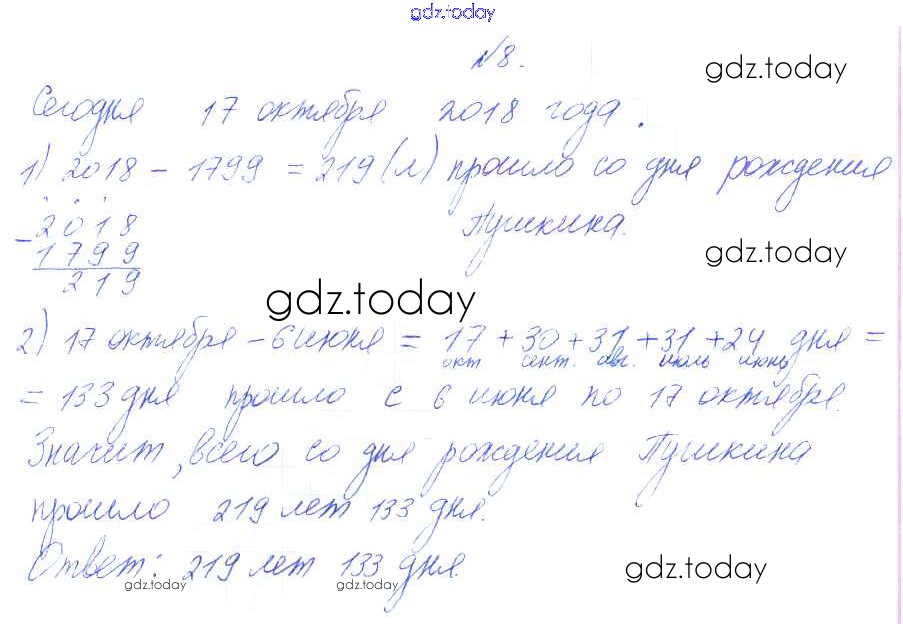 gdz.today
№8.
gdz.today
Сегодня 17 октября 2018 года.
1) 2018 - 1799 = 219 (л) прошло со дня рождения
Пушкина.
- 2018
1799
219
gdz.today
gdz.today
2) 17 октября - 6 июня = 17 + 30 + 31 + 31 + 24 дня =
окт сент. авг. июль июнь
= 133 дня прошло с 6 июня по 17 октября.
Значит, всего со дня рождения Пушкина
прошло 219 лет 133 дня.
Ответ: 219 лет 133 дня.
gdz.today gdz.today gdz.today